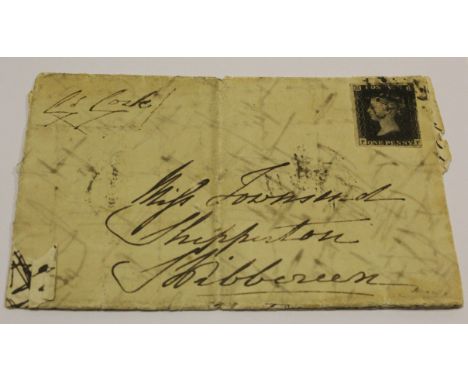 Cork
POSTAGE
ONE PENNY
Miss Townsend
Shipperton
Skibbereen